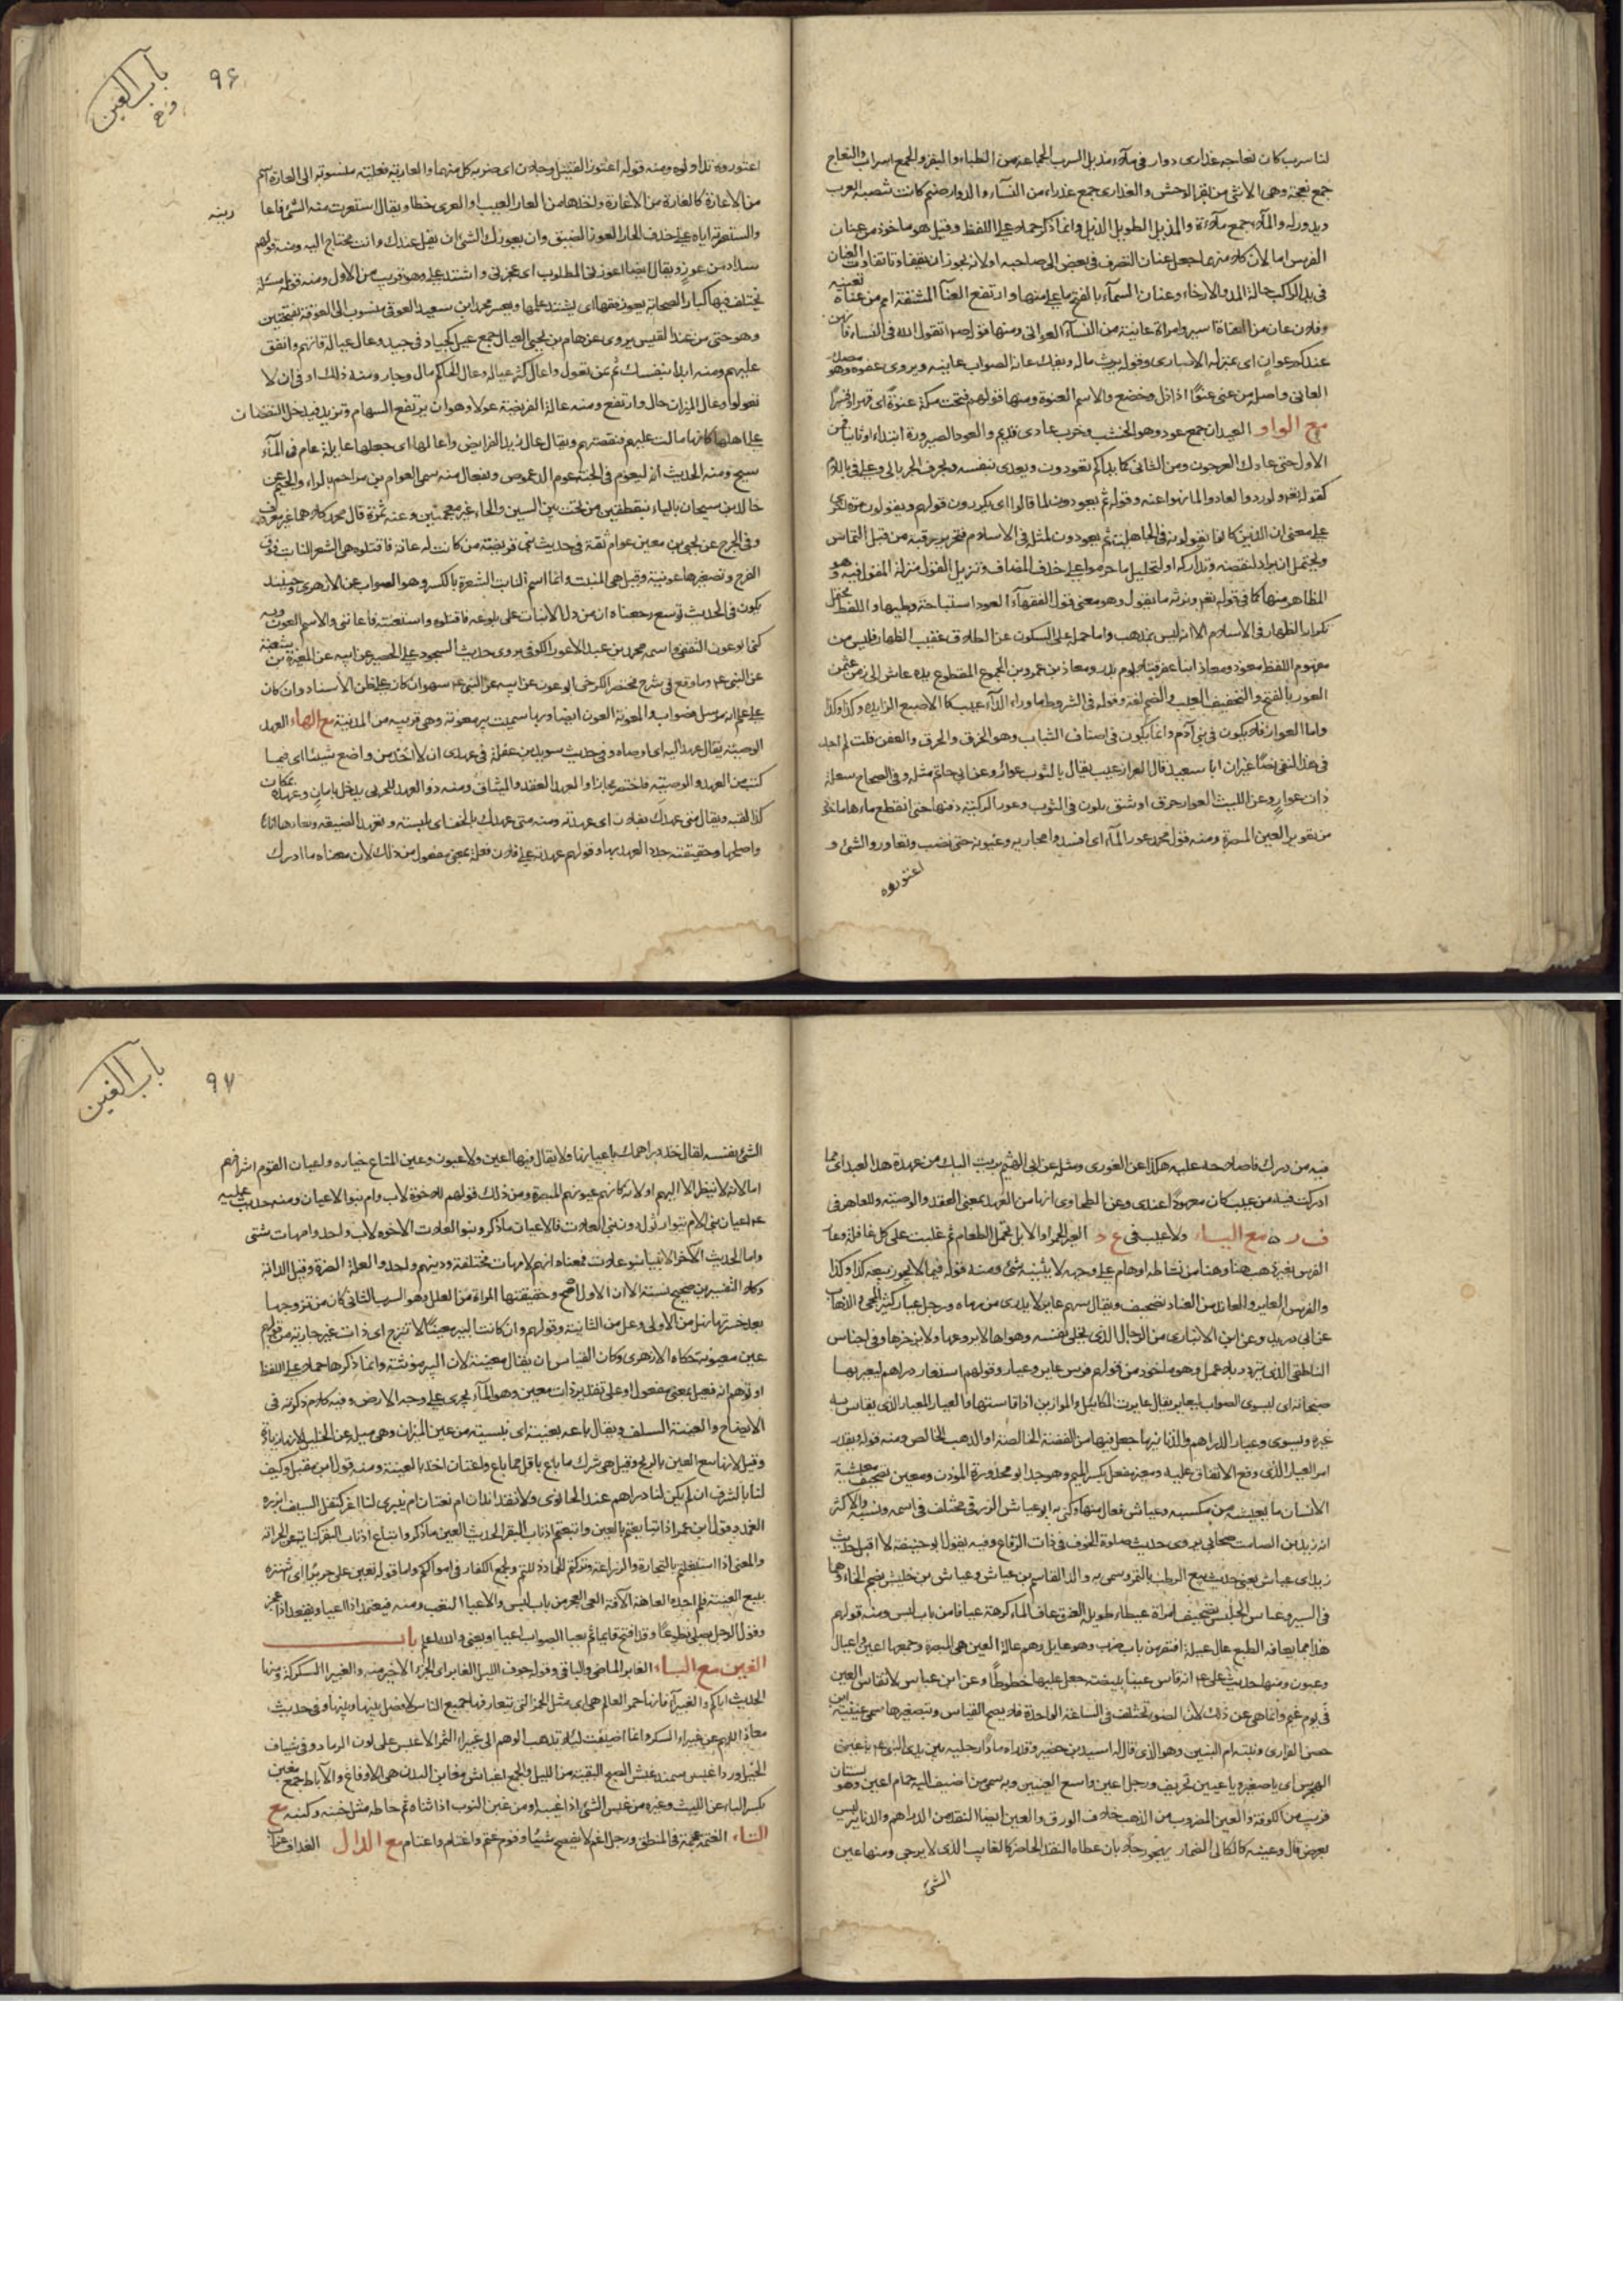 لنا سرب كان نعاجه عذارى دوار فى ملاء مذيل السرب الجماعة من الظباء والبقر والجمع اسراب والنعاج
جمع نعجة وهى الانثى من بقر الوحش والعذارى جمع عذراء من النساء والدوار صنم كانت تنصبه العرب
ويدورله والملاء جمع ملاءة والمذيل الطويل الذيل وانما ذكر حملا على اللفظ وقيل هو ماخوذ من عنان
الفرس اما لان كلا منهما جعل عنان التصرف فى بعض الى صاحبه اولانه يجوز ان يتفاوتا تفاوت العنان
فى يد الراكب حالة المد والارخاء وعنان السماء بالفتح ما علا منها وارتفع العنآ المشقة اسم من عناه تعنيه
وفلان عان من العناة اسير وامراة عانية من النساء العوانى ومنها قوله اتقوا الله فى النساء فانهن
عندكم عوانٍ اى بمنزلة الاسارى وقوله يرث ماله ويفك عانه الصواب عانيه ويروى عنوه وهو مصدر
العانى واصله من عنى عنوًّا اذا ذل وخضع والاسم العنوة ومنها قولهم فتحت مكة عنوة اى قهرا وقسرًا
مع الواو العيدان جمع عود وهو الخشب وخرب عادى قديم والعود الصيرورة ابتداء او ثانيا فمن
الاول حتى عاد كالعرجون ومن الثانى كما بداكم تعودون ويعدى بنفسه وبحرف الجر بالى وعلى وفى باللام
كقوله تع ولو ردوا لعادوا لما نهوا عنه وقوله ثم يعودون لما قالوا اى يكررون قولهم ويقولون مرة اخرى
على معنى ان الذين كانوا يقولونه فى الجاهلية ثم يعودون لمثله فى الاسلام فتحرير رقبة من قبل التماس
ويحتمل ان يراد لنقضه وتداركه او لتحليل ما حرموا على حذف المضاف وتنزيل القول منزلة المقول فيه وهو
المظاهر منها كما فى قوله تع ونرثه ما يقول وهو معنى قول الفقهاء العود استباحة وطيها واللفظ يحتمل
تكرار الظهار فى الاسلام الا انه ليس بمذهب واما حمله على السكوت عن الطلاق عقيب الظهار فليس من
مفهوم اللفظ معوذ ومعاذ ابنا عفراء قتلا يوم بدر ومعاذ بن عمرو بن الجموح المقطوع يده عاش الى زمن عثمن
العوار بالفتح والتخفيف العيب والضم لغة وقوله فى الشروط ما وراء الداء عيب كالاصبع الزايدة وكذا وكذا
واما العوار فلا يكون فى بنى آدم وانما يكون فى اصناف الثياب وهو الخرق والحرق والعفن قلت لم اجد
فى هذا النفى نصًّا غير ان ابا سعيد قال العوار عيب يقال بالثوب عوار وعن ابى حاتم مثله وفى الصحاح سعلة
ذات عوارٍ وعن الليث العوار خرق او شق يكون فى الثوب وعور الركية دفنها حتى انقطع ماءها ماخوذ
من تعوير العين المبصرة ومنه قول محمد عور الماء اى افسدوا مجاريه وعيونه حتى نضب وتعاوروا الشئ و
اعتوروه
باب العين
و غ
٩٦
اعتوروه تداولوه ومنه قوله اعتور القتيل رجلان اى ضربه كل منهما والعارية فعلية منسوبة الى العارة اسم
من الاعارة كالغارة من الاغارة واخذها من العار العيب او العرى خطا ويقال استعرت منه الشئ فاعارنيه
واستعرته اياه على حذف الجار العوز الضيق وان يعوزك الشئ ان يقل عندك وانت محتاج اليه ومنه قولهم
سداد من عوزٍ ويقال ايضا اعوزنى المطلوب اى اعجزنى واشتد على وهو قريب من الاول ومنه قوله مسئلة
يختلف فيها كبار الصحابة يعوز فقهها اى يشتد علمها ويعسر محمد ابن سعيد العوقى منسوب الى العوقة بفتحتين
وهو حى من عبد القيس يروى عن همام بن يحيى العيال جمع عيل كجياد فى جيد وعال عياله قاتهم وانفق
عليهم ومنه ابدا بنفسك ثم بمن تعول واعال كثر عياله وعال الحاكم مال وجار ومنه ذلك ادنى ان لا
تعولوا وعال الميزان حال وارتفع ومنه عالة الفريضة عولا وهو ان يرتفع السهام وتزيد فيدخل النقصان
على اهلها كانها مالت عليهم فنقصتهم ويقال عال زيد الفرايض واعالها اى جعلها عايلة عام فى الماء
سبح ومنه الحديث انه ليعوم فى الجنة عوم الدعموص وبفعال منه سمى العوام بن مراحم بالراء والجيم عن
خالد بن سيحان بالياء بنقطتين من تحت بين السين والحاء غير معجمتين وعنه ثمرة قال محمد كلاهما غير معروف
وفى الجرح عن يحيى بن معين عوام ثقة فى حديث بنى قريظة من كانت له عانة فاقتلوه هى الشعر النابت فوق
الفرج وتصغيرها عوينة وقيل هى المنبت وانما اسم النابت الشعرة بالكسر وهو الصواب عن الازهرى وحينئذ
يكون فى الحديث توسع ومعناه ان من دل الانبات على بلوغه فاقتلوه واستعنته فاعاننى والاسم العون وبه
كنى ابو عون الثقفى واسمه محمد بن عبد الله الاعور الكوفى يروى حديث السجود على الحصير عن ابيه عن المغيرة بن شعبة
عن النبى ع م وما وقع فى شرح مختصر الكرخى ابو عون عن ابيه عن النبى ع م سهو ان كان على ظن الاسناد وان كان
على علم انه مرسل فصواب والمعونة العون ايضا وبها سميت بير معونة وهى قريبه من المدينة مع الهاء العهد
الوصية يقال عهد اليه اى اوصاه وفى حديث سويد بن غفلة فى عهدى ان لا اخذ من راضع شيئا اى فيما
كتب من العهد والوصية فاختصر مجازا والعهد العقد والميثاق ومنه ذو العهد للحربى يدخل بامانٍ وعهده بمكان
كذا لقيه ويقال متى عهدك بفلان اى عهدته ومنه متى عهدك بالخف اى بلبسه وتعهد الضيعة وتعاهدها اتاها
واصلحها وحقيقته جدد العهد بها وقولهم عهدته على فلان فعلة بمعنى مفعول من ذلك لان معناه ما ادرك
فيه من درك فاصلاحه عليه هكذا عن الغورى ومثله عن ابى الهيثم بريت اليك من عهدة هذا العبد اى مما
ادركت فيه من عيب كان معهودًا عندى وعن الطحاوى انها من العهد بمعنى العقد والوصية والعاهر فى
ف ر ه مع الياء ولا عيب فى ع د العير الحمر او الابل تحمل الطعام ثم غلبت على كل قافلة وعار
الفرس يعير ذهب هنا وهنا من نشاطه او هام على وجهه لا يثنيه شئ ومنه قوله فيما لا يجوز بيعه كذا وكذا
والفرس العاير والعاند من العناد تصحيف ويقال سهم عاير لا يدرى من رماه ورجل عيار كثير المجئ والذهاب
عن ابن دريد وعن ابن الانبارى من الرجال الذى يخلى نفسه وهواها لا يروعها ولا يزجرها وفى اجناس
الناطفى الذى يتردد بلا عمل وهو ماخوذ من قولهم فرس عاير وعيار وقولهم استعار دراهم ليعير بها
صنجاته اى ليسوى الصواب ليعاير يقال عايرت المكاييل والموازين اذا قايستها والعيار المعيار الذى يقاس به
غيره ويسوى وعيار الدراهم والدنانير ما جعل فيها من الفضة الخالصة او الذهب الخالص ومنه قوله وبقدر
امر العيار الذى وقع الاتفاق عليه ومعير مفعل بكسر الميم وهو جد ابو محذورة المؤذن ومعين تصحيف معيشة
الانسان ما يعيشه من مكسبه وعياش فعال منها وكنى به ابو عياش الزرقى مختلف فى اسمه ونسبه والاكثر
انه زيد بن الصامت صحابى يروى حديث صلوة الخوف فى ذات الرقاع وفيه يقول ابو حنيفة لا اقبل حديث
زيد اى عياش يعنى حديث بيع الرطب بالتمر وسمى به والد القاسم بن عياش وعياش بن خليس بضم الخاء وهما
فى السير وعباس الجليس تصحيف امراة عيطاء طويلة العنق عاف الماء كرهه عيافا من باب لبس ومنه قولهم
هذا مما يعافه الطبع عال عيلة افتقر من باب ضرب وهو عايل وهم عالة العين هى المبصرة وجمعها اعين واعيان
وعيون ومنها حديث على ع م انه قاس عينا ببيضة جعل عليها خطوطًا وعن ابن عباس لا تقاس العين
فى يوم غيم وانما نهى عن ذلك لان الضوء يختلف فى الساعة الواحدة فلا يصح القياس وبتصغيرها سمى عيينة ابن
حصن الفزارى وبنته ام البنين وهو الذى قال له اسيد بن حضير وقد راه مادًّا رجليه بين يدى النبى ع م يا عينى
الهجرس اى يا صغيره يا عيينين تحريف ورجل اعين واسع العينين وبه سمى من اضيف اليه حمام اعين وهو بستان
قريب من الكوفة والعين المضروب من الذهب خلاف الورق والعين ايضا النقد من الدراهم والدنانير ليس
بعرض قال وعينه كالكالى الضمار يهجو رجلا بان عطاه النقد الحاضر كالغايب الذى لا يرجى ومنها عين
الشئ
باب الغين
٩٧
الشئ نفسه لقال خذ دراهمك باعيانها ولا يقال فيها العين ولا عيون وعين المتاع خياره واعيان القوم اشرافهم
اما لانه لا ينظر الا اليهم او لانه كانهم عيونهم المبصرة ومن ذلك قولهم للاخوة لاب وام بنو الاعيان ومنه حديث على
ع م اعيان بنى الام يتوارثون دون بنى العلات فالاعيان ما ذكر وبنو العلات الاخوة لاب واحد وامهات شتى
واما الحديث الاخر الانبياء بنو علات فمعناه انهم لامهات مختلفة ودينهم واحد والعلة الضرة وقيل الرابة
وكلا التفسيرين صحيح نسبة الا ان الاول اصح وحقيقتها المراة من العلل وهو الشرب الثانى كان من تزوجها
بعد ضرتها نهل من الاولى وعل من الثانية وقولهم وان كانت البير معينًا لا تنزح اى ذات غير جارية من قولهم
عين معيونة حكاه الازهرى وكان القياس ان يقال معينة لان البير مونثة وانما ذكرها حملا على اللفظ
او توهم انه فعيل بمعنى مفعول او على تقدير ذات معين وهو الماء يجرى على وجه الارض وفيه كلام ذكرته فى
الايضاح والعينة السلف ويقال باعه بعينة اى بنسيئة من عين الميزان وهى ميله عن الخليل لانها زيادة
وقيل لانها بيع العين بالربح وقيل هى شرك ما باع باقل مما باع واعتان اخذ بالعينة ومنه قول ابن مقبل وكيف
لنا بالشرب ان لم يكن لنا دراهم عند الحانوى ولا نقد اندان ام نعتان ام ينبرى لنا اغر كنصل السيف ابرزه
الغمد وقول ابن عمر اذا تبايعتم بالعين واتبعتم اذناب البقر الحديث العين ما ذكر واتباع اذناب البقر كناية عن الحراثة
والمعنى اذا اشتغلتم بالتجارة والزراعة وتركتم الجهاد ذللتم وطمع الكفار فى اموالكم واما قوله تعين على حريرًا اى اشتره
ببيع العينة فلم اجده العاهة الآفة العى العجز من باب لبس والاعياء التعب ومنه فيعتمد اذا اعيا ويقعد اذا عجز
وقوله الرجل يصلى تطوعًا وقد افتتح قايما ثم يعيا الصواب اعيا او يعى والله اعلم باب
الغين مع الباء الغابر الماضى والباقى وقوله جوف الليل الغابر اى الجزء الاخير منه والغبيرا السكركة ومنها
الحديث اياكم والغبيراء فانها خمر العالم هى اى مثل الخمر التى يتعارفها جميع الناس لا فصل بينها وبينها وفى حديث
معاذ انههم عن غبيراء السكر وانما اضيفت لئلا يذهب الوهم الى غبيراء الثمر الاغبس على لون الرماد وفى شيات
الخيل ورد اغبس سمند غبش الصبح البقية من الليل والجمع اغباش مغابن البدن هى الارفاغ والآباط جمع مغبن
بكسر الباء عن الليث وغيره من غبس الشئ اذا غيبه او من غبن الثوب اذا ثناه ثم خاطه مثل خبنه وكبنه مع
التاء الغتمة عجمة فى المنطق ورجل اغتم لا يفصح شيئًا وقوم غتم واغتام واغتام مع الدال الغداف غراب